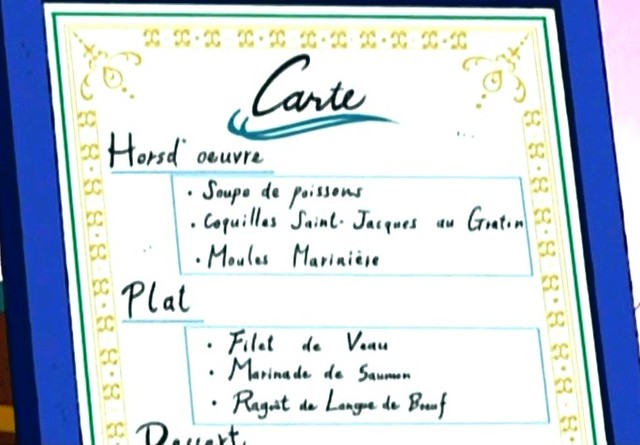 Carte
Horsd' oeuvre
• Soupe de poissons
• Coquilles Saint-Jacques au Gratin
• Moules Marinière
Plat
• Filet de Veau
• Marinade de Saumon
• Ragoût de Langue de Bœuf
Dessert